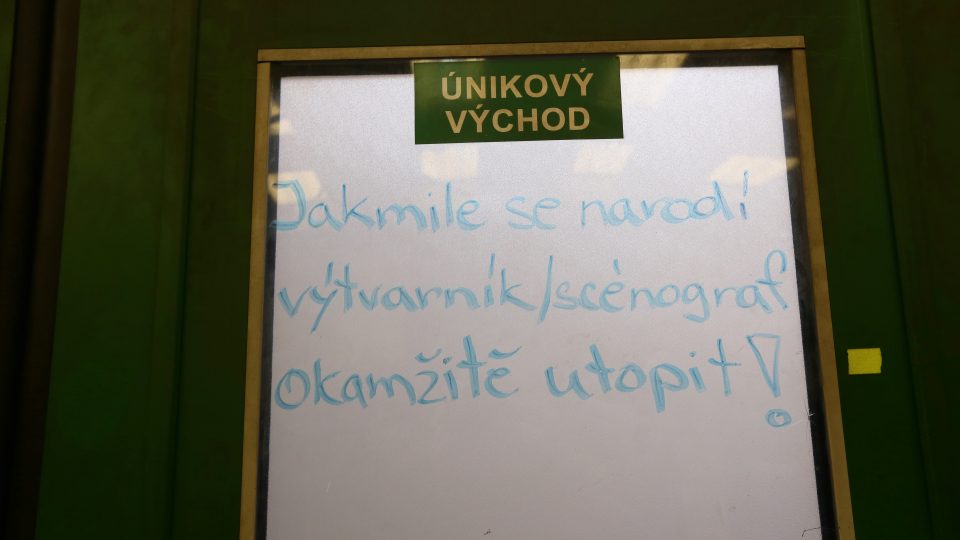 ÚNIKOVÝ
VÝCHOD
Jakmile se narodí
výtvarník/scénograf
okamžitě utopit!